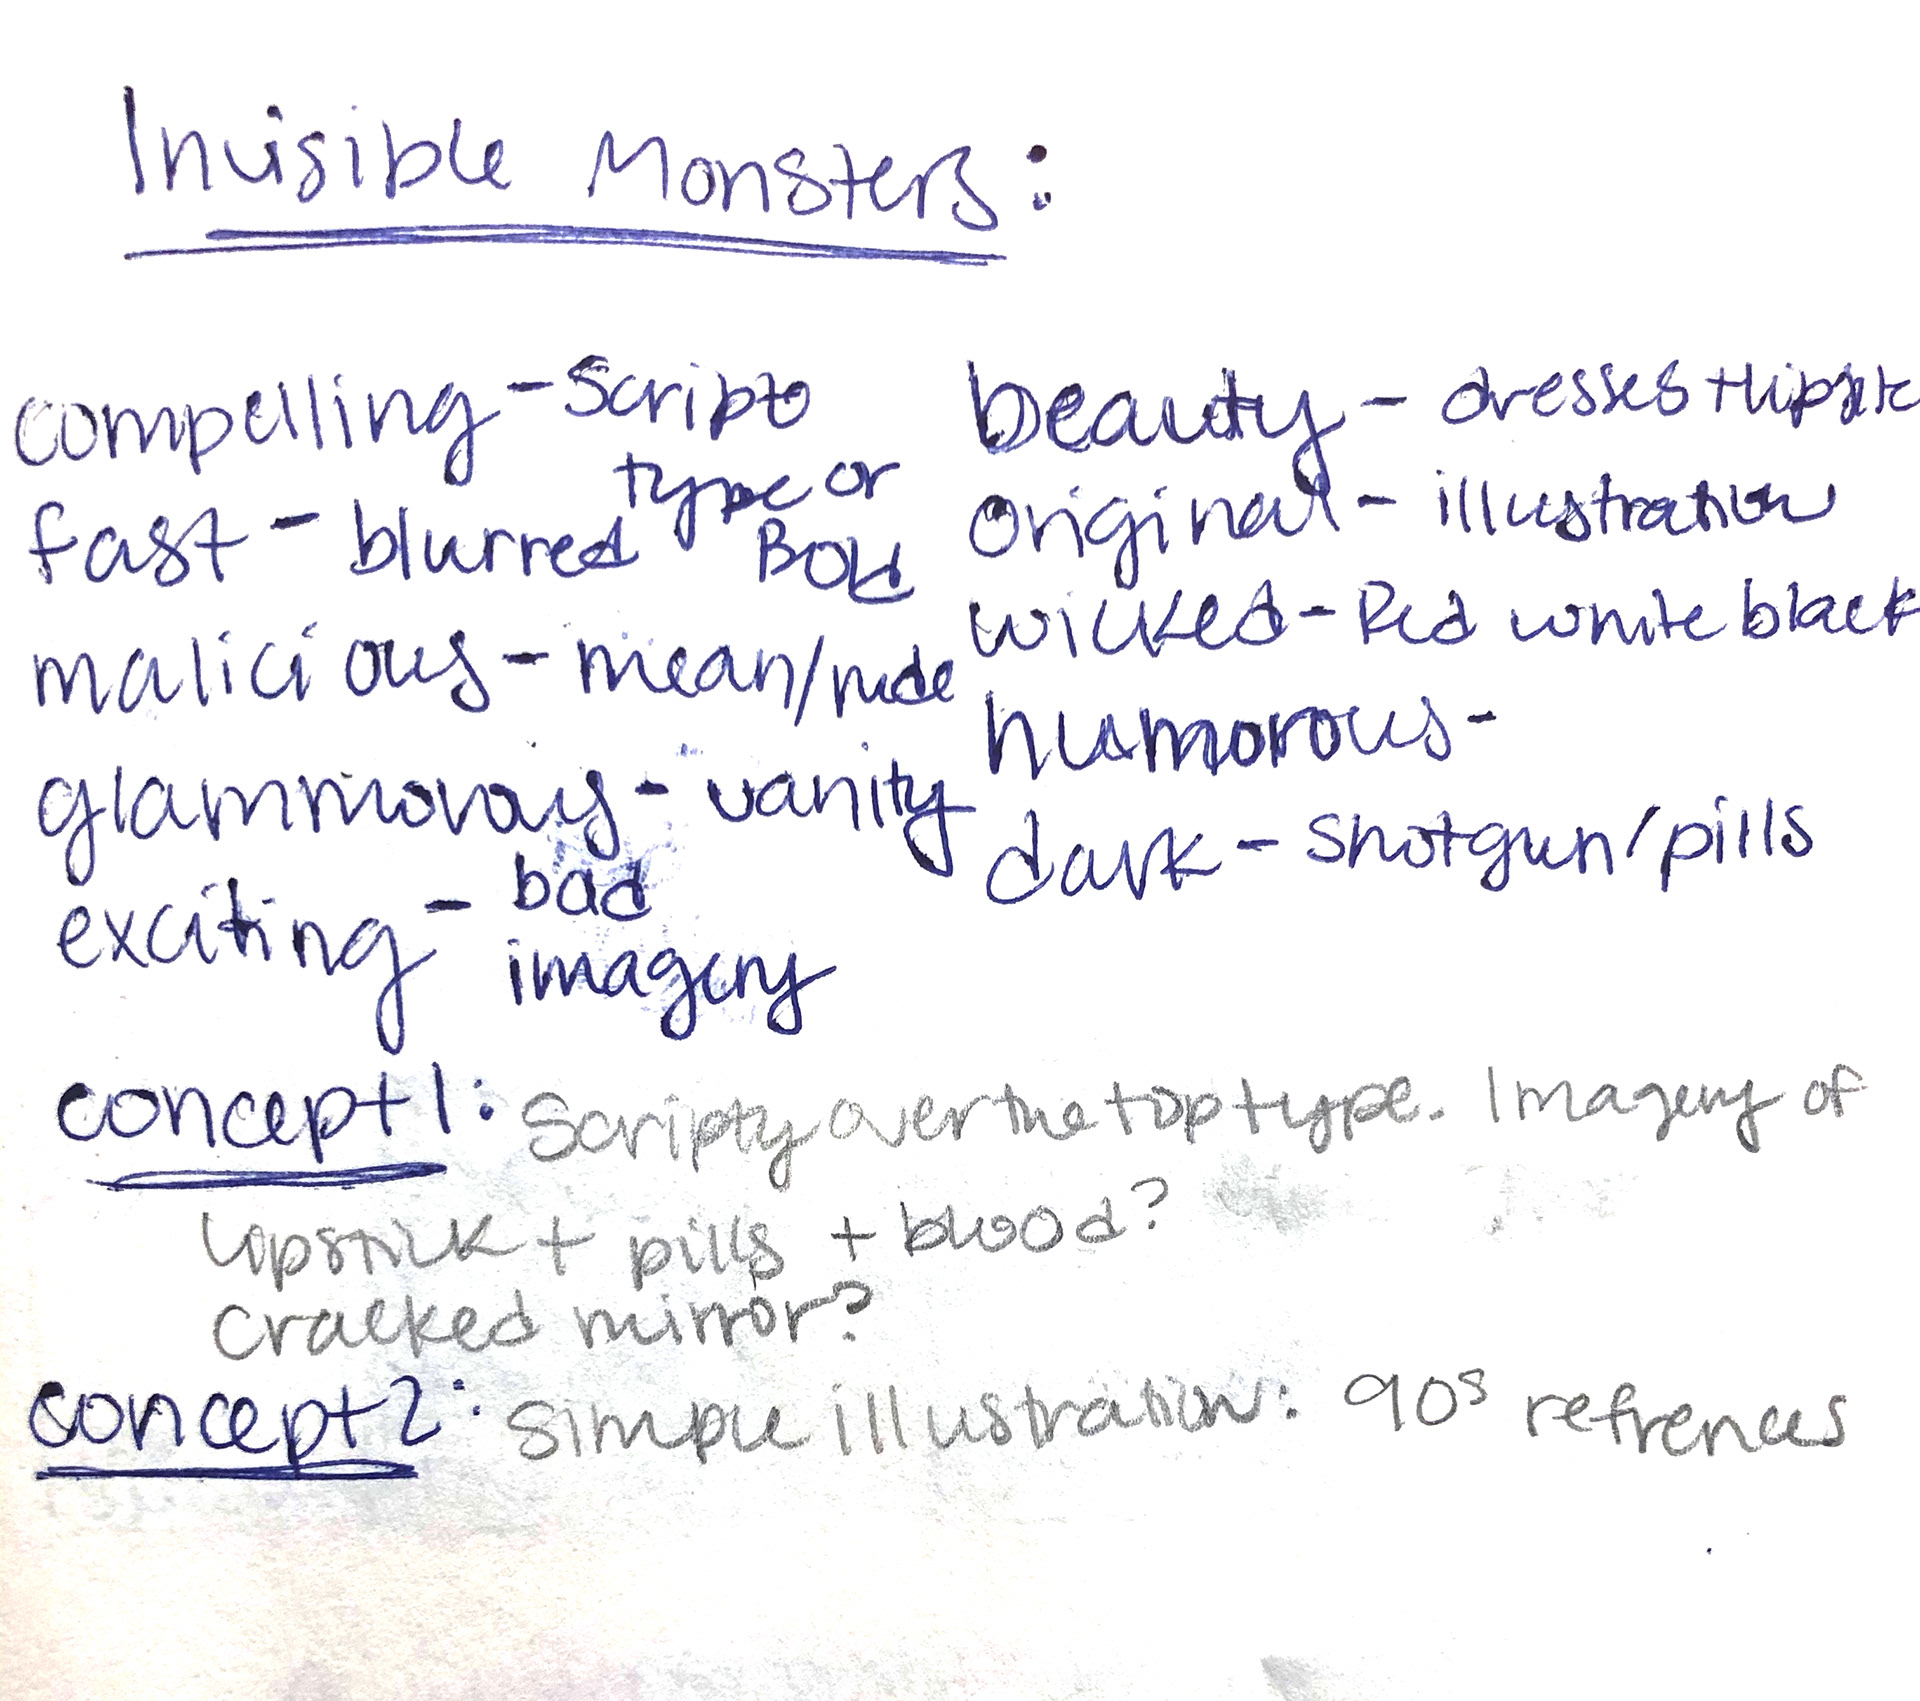 Invisible Monsters:
compelling - Scripto
type or
Bold
fast - blurred
malicious - mean/rude
glammorous - vanity
exciting - bad
imagery
beauty - dresses + lipstick
original - illustration
wicked - Red white black
humorous -
dark - shotgun/pills
concept 1: Scripty over the top type. Imagery of
lipstick + pills + blood?
cracked mirror?
concept 2: Simple illustration: 90s refrences